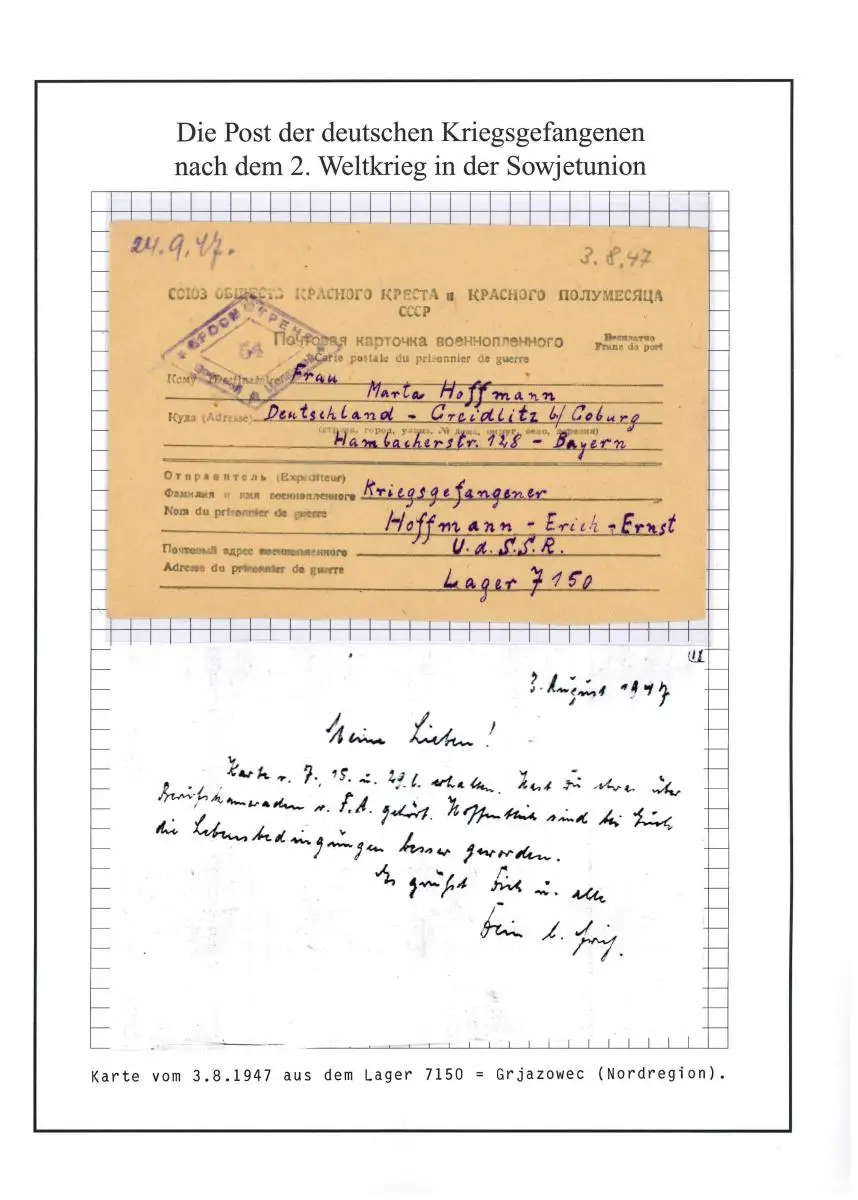 Die Post der deutschen Kriegsgefangenen
nach dem 2. Weltkrieg in der Sowjetunion
24.9.47.
3.8.47
СОЮЗ ОБЩЕСТВ КРАСНОГО КРЕСТА и КРАСНОГО ПОЛУМЕСЯЦА
СССР
54
Почтовая карточка военнопленного
Бесплатно
Carte postale du prisonnier de guerre
Franc de port
Кому (Destinataire) Frau
Marta Hoffmann
Куда (Adresse) Deutschland - Creidlitz b/ Coburg
(страна, город, улица, № дома, округ, село, деревня)
Hambacherstr. 128 - Bayern
Отправитель (Expéditeur)
Фамилия и имя военнопленного Kriegsgefangener
Nom du prisonnier de guerre
Hoffmann - Erich - Ernst
Почтовый адрес военнопленного U.d.S.S.R.
Adresse du prisonnier de guerre
Lager 7150
3. August 1947
Meine Lieben!
Karte v. 7., 15. u. 29.6. erhalten. Hast Du etwas über
Berufskameraden v. F.A. gehört. Hoffentlich sind bei Euch
die Lebensbedingungen besser geworden.
Es grüßt Dich u. alle
Dein
Karte vom 3.8.1947 aus dem Lager 7150 = Grjazowec (Nordregion).